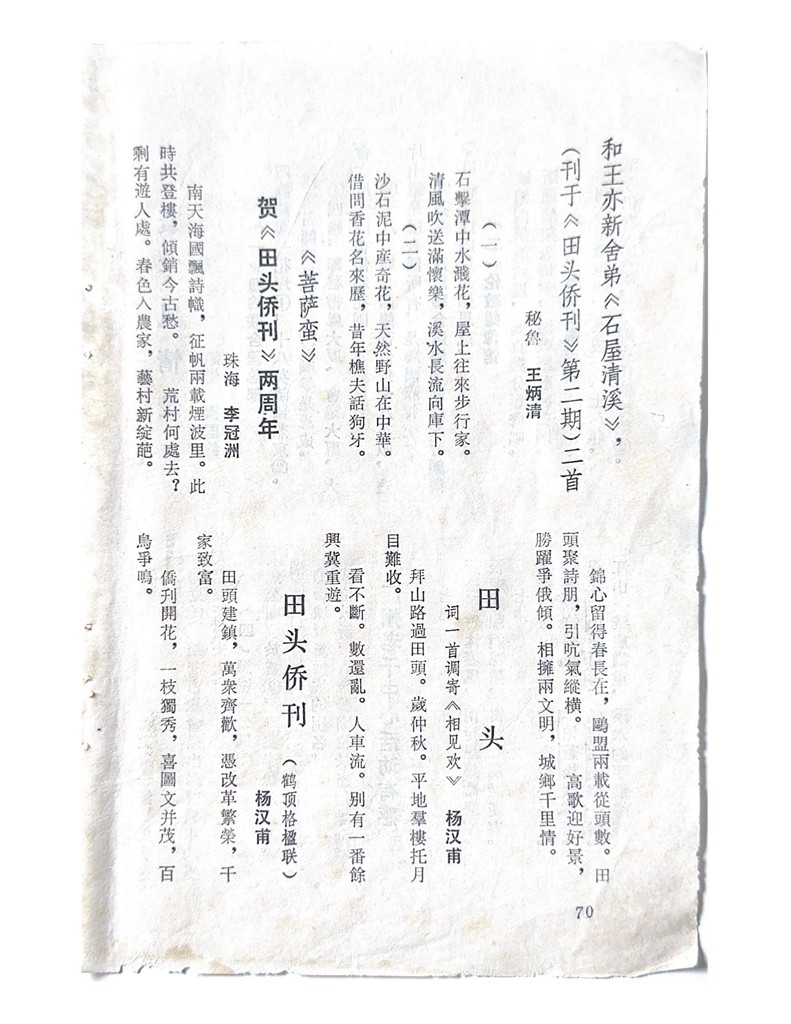 和王亦新舍弟《石屋清溪》，
（刊于《田头侨刊》第二期）二首
秘鲁　王炳清
（一）
石擊潭中水濺花，屋上往來步行家。
清風吹送滿懷樂，溪水長流向庫下。
（二）
沙石泥中産奇花，天然野山在中華。
借問香花名來歷，昔年樵夫話狗牙。
《菩萨蛮》
贺《田头侨刊》两周年
珠海　李冠洲
南天海國飄詩幟，征帆兩載煙波里。此
時共登樓，傾銷今古愁。　荒村何處去？
剩有遊人處。春色入農家，藝村新綻葩。
錦心留得春長在，鷗盟兩載從頭數。田
頭聚詩朋，引吭氣縱横。　高歌迎好景，
勝躍爭俄傾。相擁兩文明，城鄉千里情。
田　头
词一首调寄《相见欢》　杨汉甫
拜山路過田頭。歲仲秋。平地羣樓托月
目難收。
看不斷。數還亂。人車流。别有一番餘
興冀重遊。
田头侨刊（鹤顶格楹联）
杨汉甫
田頭建鎮，萬衆齊歡，憑改革繁榮，千
家致富。
僑刋開花，一枝獨秀，喜圖文并茂，百
鳥爭鳴。
70